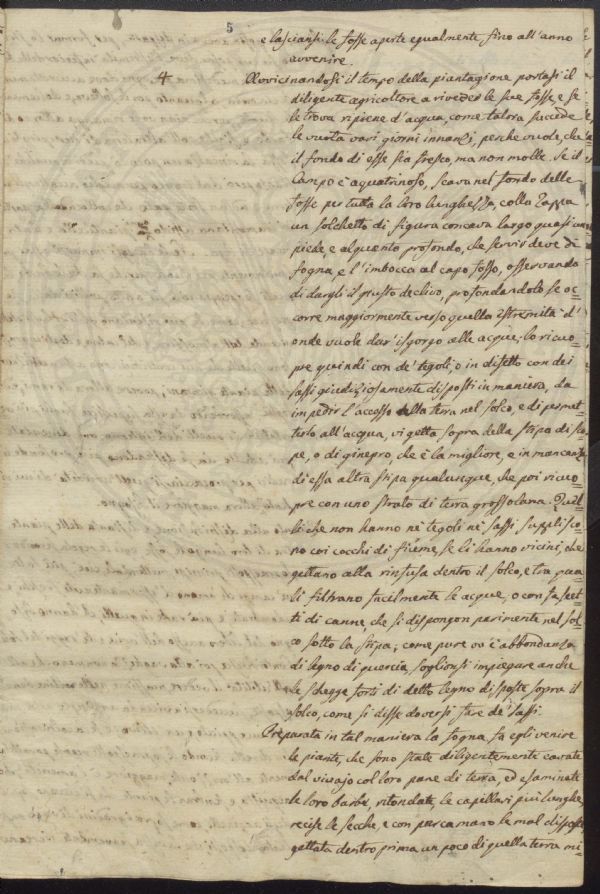 5
e lasciansi le fosse aperte egualmente fino all'anno
avvenire.
4 Avvicinandosi il tempo della piantagione portasi il
diligente agricoltore a riveder le sue fosse, e se
le trova ripiene d'acqua, come talora succede
le vuota vari giorni innanzi, perche vuole, che
il fondo di esse sia fresco, ma non molle. Se il
Campo è aquatrinoso, scava nel fondo delle
fosse per tutta la loro lunghezza, colla Zappa
un solchetto di figura concava largo quasi un
piede, e alquanto profondo, che servir deve di
fogna, e l'imbocca al capo fosso, osservando
di dargli il giusto declivo, profondandolo se oc=
corre maggiormente verso quella estremità d'
onde vuole dar'isgorgo alle acque; lo ricuo=
pre quindi con de' tegoli, o in difetto con dei
sassi giudiziosamente disposti in maniera, da
impedir l'accesso della terra nel solco, e di permet=
terlo all'acqua, vi getta sopra della stipa di sco=
pe, o di ginepro, che è la migliore, e in mancanza
di essa altra stipa qualunque, che poi ricuo=
pre con uno strato di terra grossolana. Quel=
li che non hanno nè tegoli nè sassi, supplisco=
no coi cocchi di fiume, se li hanno vicini, che
gettano alla rinfusa dentro il solco, e tra qua=
li filtrano facilmente le acque, o con fascet=
ti di canne, che si dispongon parimente nel sol=
co sotto la stipa; come pure ov'è abbondanza
di legno di quercia, soglionsi impiegare anche
le schegge forti di detto legno disposte sopra il
solco, come si disse doversi fare de' sassi.
Preparata in tal maniera la fogna, fa egli venire
le piante, che sono state diligentemente cavate
dal vivajo col loro pane di terra, ed esaminate
le loro barbe, ritondate, le capillari più lunghe,
recise le secche, e con parca mano le mal disposte
gettata dentro prima un poco di quella terra mi=